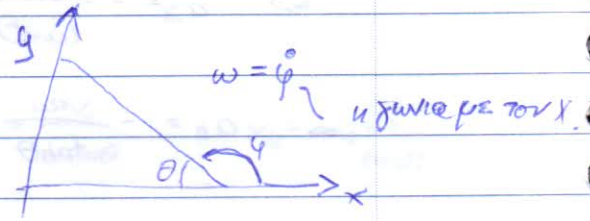 y
ω = φ̇
η γωνία με τον x.
θ
φ
x